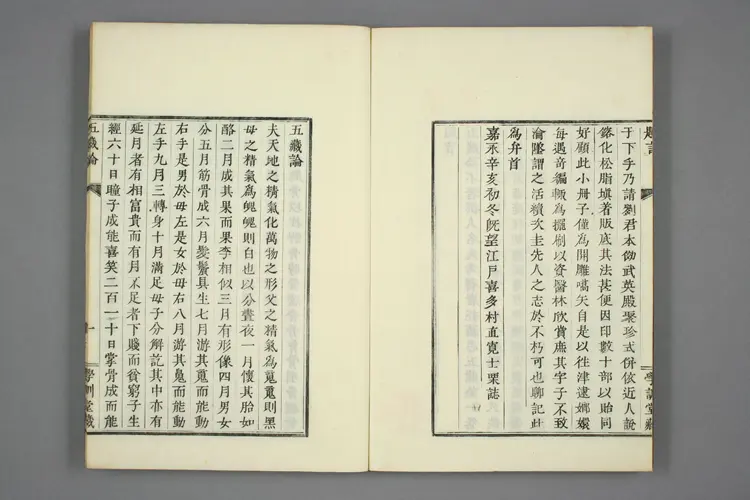 于下手乃請劉君本仿武英殿聚珍式併依近人說
鎔化松脂塡著版底其法莫便因印數十部以貽同
好顧此小冊子僅為開雕嚆矢自是以往津逮鄉嬛
每遇奇編輒為擺刷以資醫林欣賞庶其字子不致
淪墜謂之活續次圭先人之志於不朽可也聊記此
為弁首
嘉永辛亥初冬旣望江戶喜多村直寬士栗誌
學訓堂藏
五藏論
夫天地之精氣化萬物之形父之精氣為䰟䰟則黑
母之精氣為魄魄則白也以分晝夜一月懷其胎如
酪二月成其果而果李相似三月有形像四月男女
分五月筋骨成六月髮鬢具生七月游其䰟而能動
右手是男於母左是女於母右八月游其䰟而能動
左手九月三轉身十月滿足母子分解訖其中亦有
延月者有相富貴而有月不足者下賤而貧窮子生
經六十日瞳子成能喜笑二百一十日掌骨成而能
五藏論
一
學訓堂藏